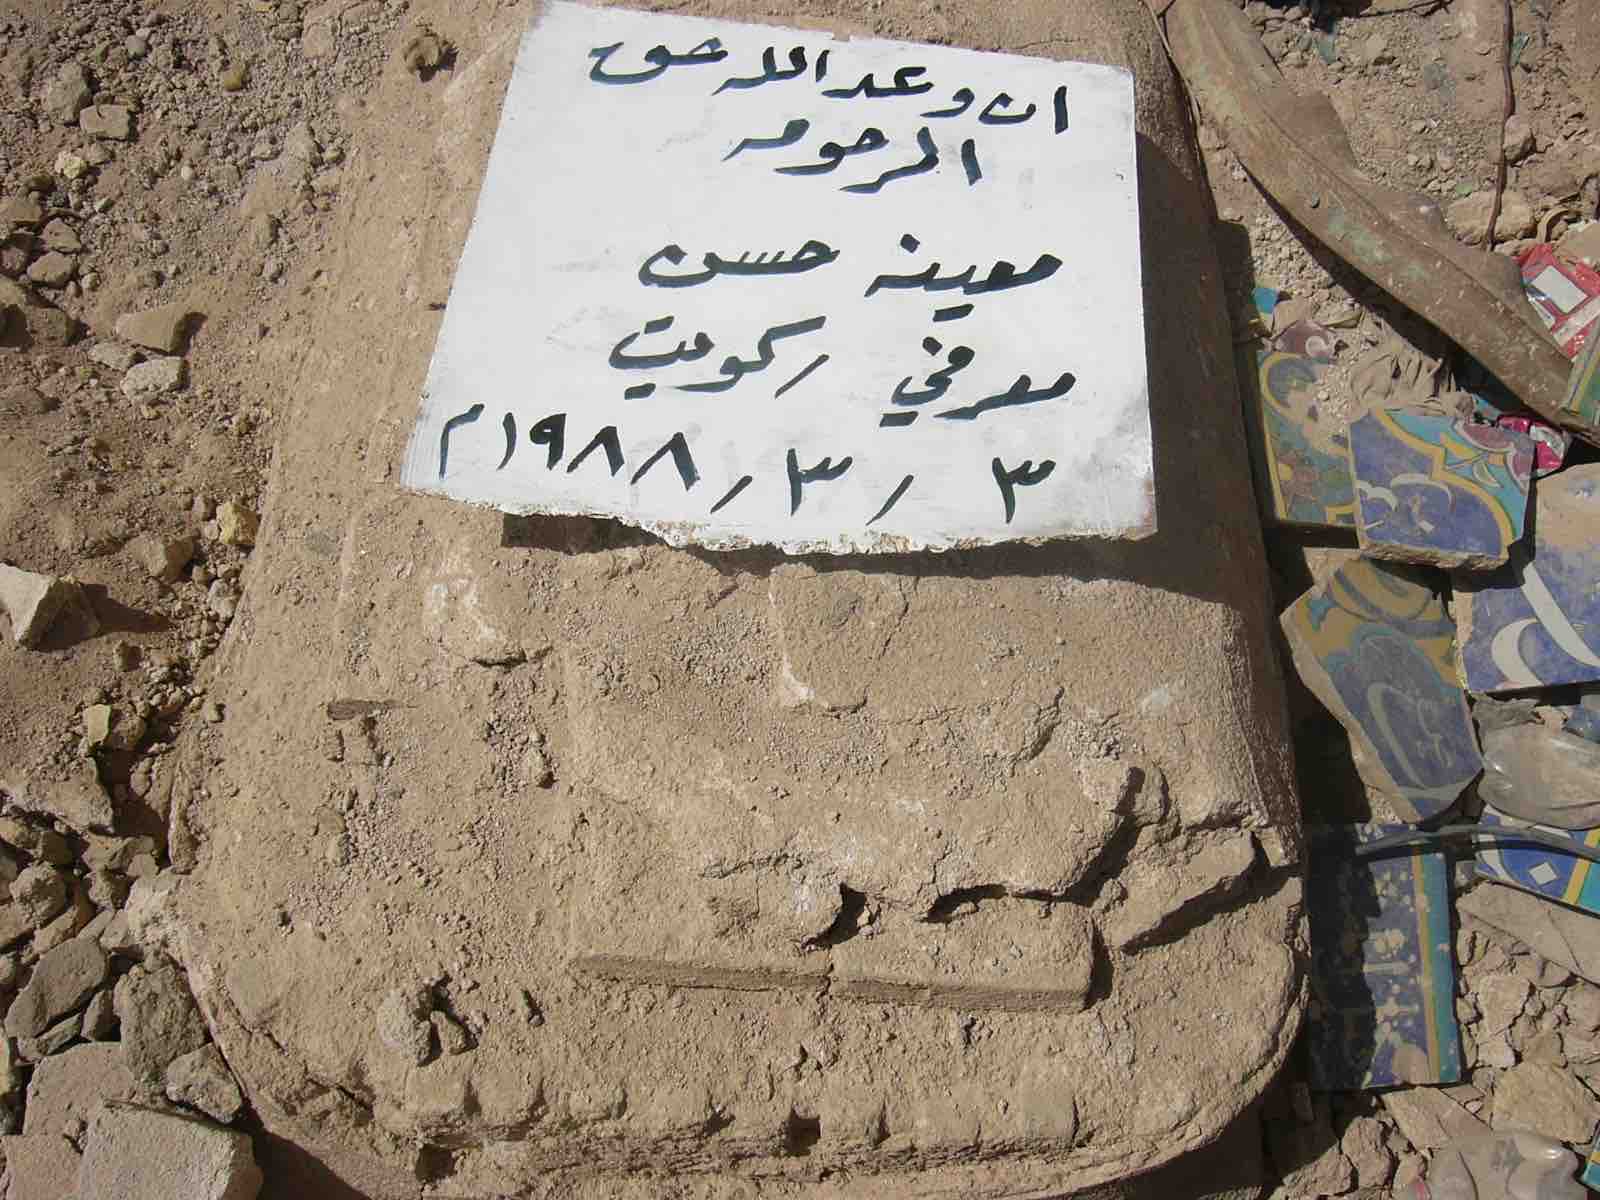 ان وعد الله حق
المرحومه
معينه حسن
معرفي / كويت
٣ / ٣ / ١٩٨٨م